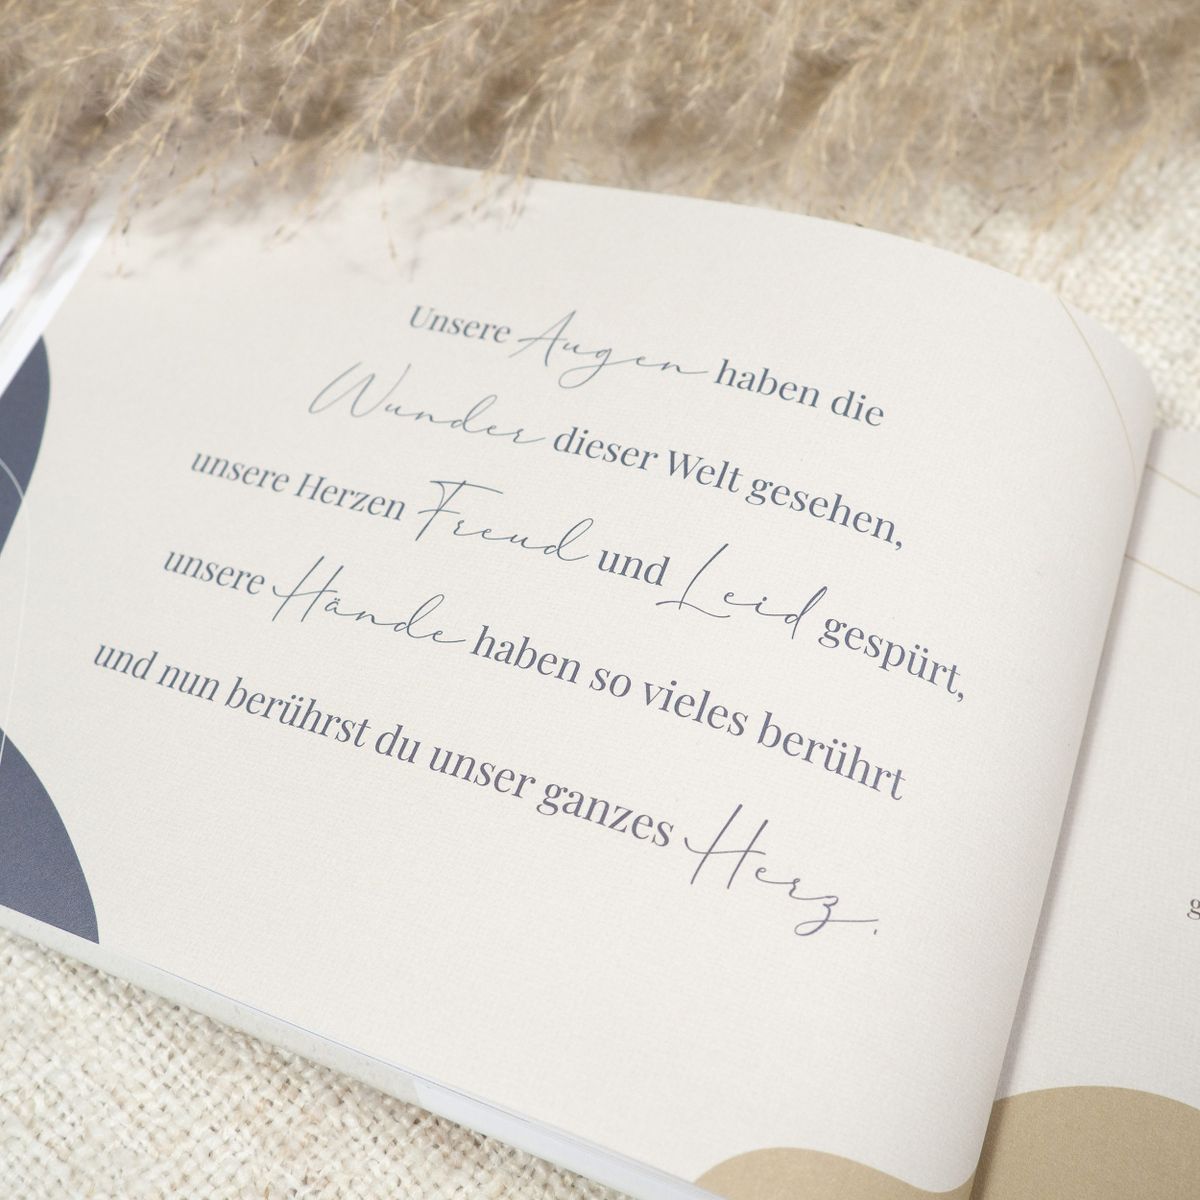 Unsere Augen haben die
Wunder dieser Welt gesehen,
unsere Herzen Freud und Leid gespürt,
unsere Hände haben so vieles berührt
und nun berührst du unser ganzes Herz.
g